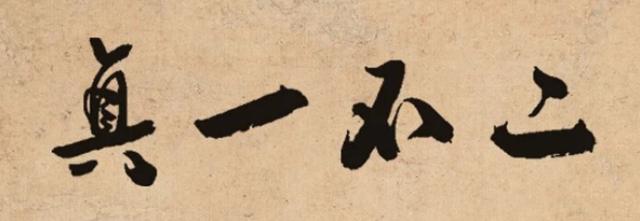 真一不二